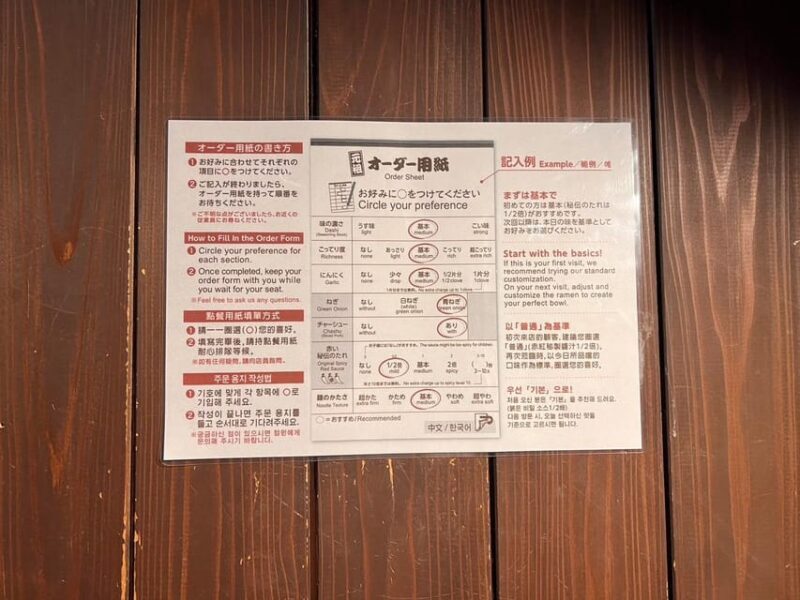 オーダー用紙の書き方
1 お好みに合わせてそれぞれの
項目に○をつけてください。
2 ご記入が終わりましたら、
オーダー用紙を持って順番を
お待ちください。
※ご不明な点がございましたら、お近くの
従業員にお尋ねください。
How to Fill In the Order Form
1 Circle your preference for
each section.
2 Once completed, keep your
order form with you while
you wait for your seat.
※Feel free to ask us any questions.
點餐用紙填單方式
1 請一一圈選(○)您的喜好。
2 填寫完畢後，請持點餐用紙
耐心排隊等候。
※如有任何疑問，請向店員詢問。
주문 용지 작성법
1 기호에 맞게 각 항목에 ○로
기입해 주세요.
2 작성이 끝나면 주문 용지를
들고 순서대로 기다려주세요.
※궁금하신 점이 있으시면 점원에게
문의해 주시기 바랍니다.
元祖 オーダー用紙
Order Sheet
お好みに○をつけてください
Circle your preference
味の濃さ うす味 基本 こい味
Dashi light medium strong
こってり度 なし あっさり 基本 こってり 超こってり
Richness none light medium rich extra rich
にんにく なし 少々 基本 1/2片分 1片分
Garlic none drop medium 1/2clove 1clove
ねぎ なし 白ねぎ 青ねぎ
Green Onion without (white) green onion green onion
チャーシュー なし あり
Chashu without with
赤い
秘伝のたれ なし 1/2倍 基本 2倍
Original Spicy
Red Sauce none mild medium spicy 3~10x
麺のかたさ 超かた かため 基本 やわめ 超やわ
Noodle Texture extra firm firm medium soft extra soft
○=おすすめ/Recommended
中文 / 한국어
記入例 Example／範例／예
まずは基本で
初めての方は基本(秘伝のたれは
1/2倍)がおすすめです。
次回以降は、本日の味を基準として
お好みをお選びください。
Start with the basics!
If this is your first visit, we
recommend trying our standard
customization.
On your next visit, adjust and
customize the ramen to create
your perfect bowl.
以「普通」為基準
初次來店的顧客，建議您圈選
「普通」(赤紅秘製醬汁1/2倍)。
再次蒞臨時，以今日所品嚐的
口味作為標準，圈選您的喜好。
우선 「기본」으로!
처음 오신 분은 「기본」을 추천해 드려요.
(붉은 비밀 소스1/2배)
다음 방문 시, 오늘 선택하신 맛을
기준으로 고르시면 됩니다.